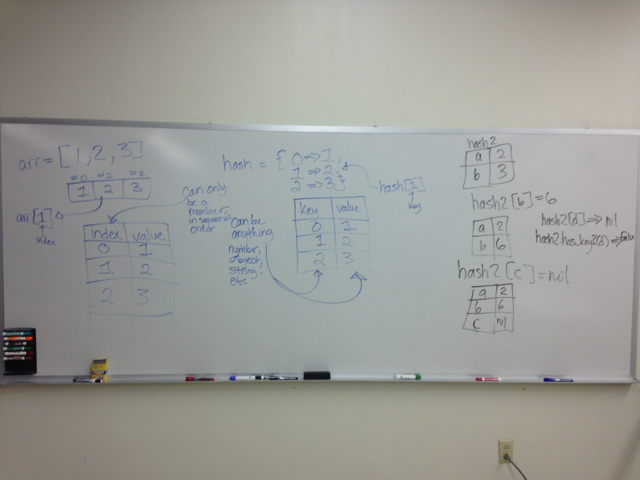 arr = [1,2,3]
#0 #1 #2
1 2 3
arr[1]
index
can only
be a
number,
in
order
index value
0 1
1 2
2 3
hash = { 0=>1,
1=>2,
2=>3}
hash[1]
key
can be
anything
number,
object,
string,
etc
key value
0 1
1 2
2 3
hash2
a 2
b 3
hash2[b]=6
a 2
b 6
hash2[d] => nil
hash2.has_key?(d) => false
hash2[c]=nil
a 2
b 6
c nil